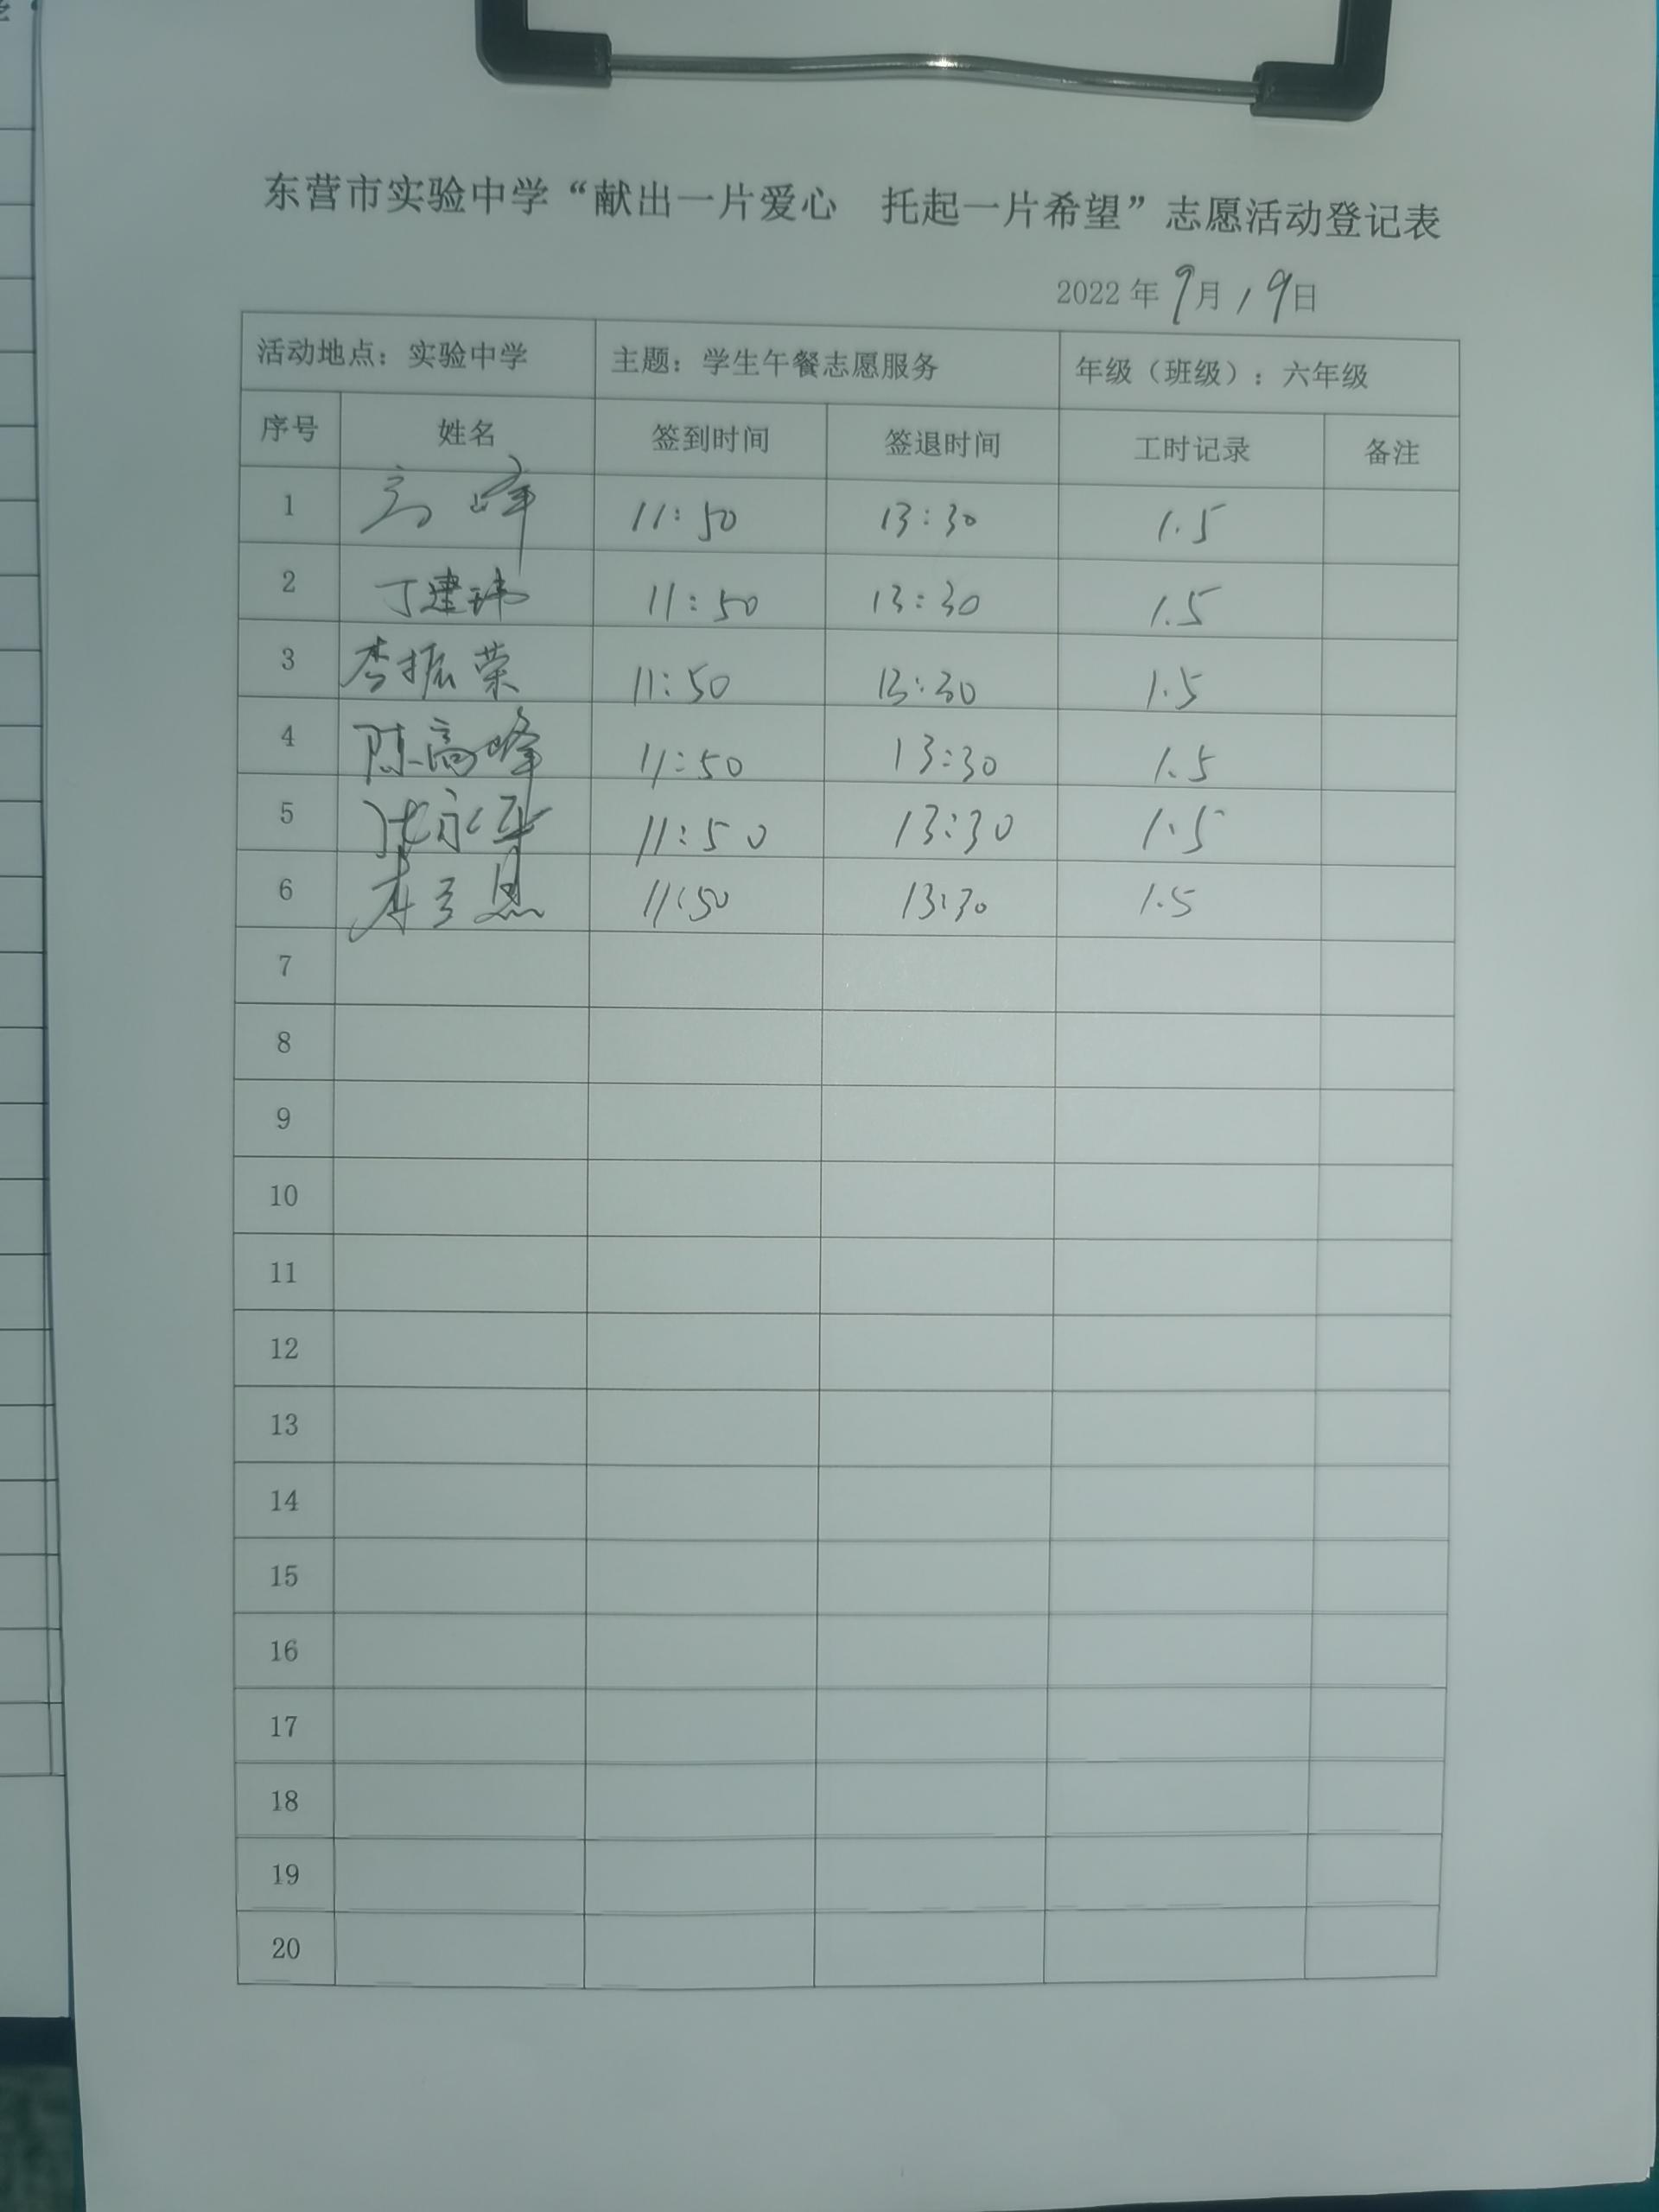 东营市实验中学“献出一片爱心 托起一片希望”志愿活动登记表
2022年9月19日
活动地点：实验中学 主题：学生午餐志愿服务 年级（班级）：六年级
序号 姓名 签到时间 签退时间 工时记录 备注
1 高峰 11:50 13:30 1.5
2 丁建玮 11:50 13:30 1.5
3 李振荣 11:50 13:30 1.5
4 陈高峰 11:50 13:30 1.5
5 张永军 11:50 13:30 1.5
6 11:50 13:30 1.5
7
8
9
10
11
12
13
14
15
16
17
18
19
20